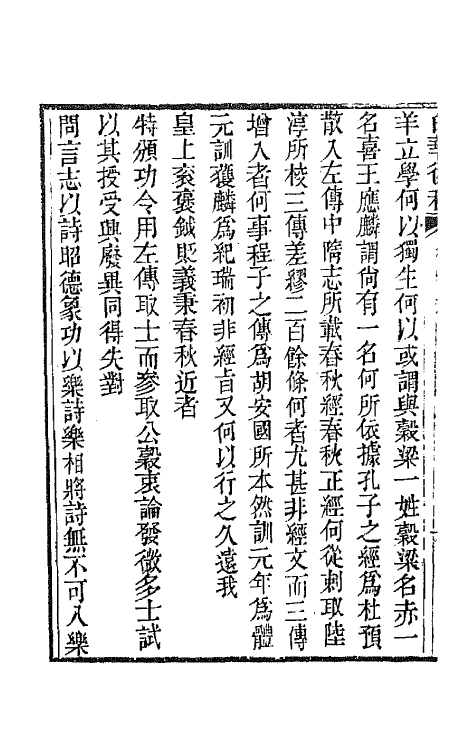 羊立學何以獨生何以或謂與穀梁一姓穀梁名赤一
名喜王應麟謂尙有一名何所依據孔子之經爲杜預
散入左傳中隋志所載春秋經春秋正經何從刺取陸
淳所校三傳差繆二百餘條何者尤甚非經文而三傳
增入者何事程子之傳爲胡安國所本然訓元年爲體
元訓獲麟爲紀瑞初非經旨又何以行之久遠我
皇上袞褒鉞貶義秉春秋近者
特頒功令用左傳取士而參取公穀衷論發微多士試
以其授受興廢異同得失對
問言志以詩昭德象功以樂詩樂相將詩無不可入樂